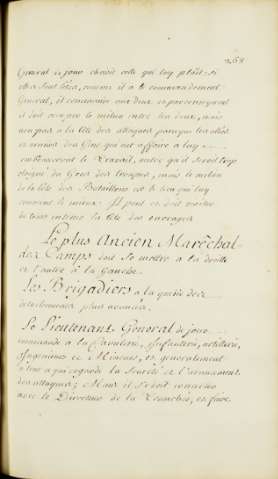 268
General de jour choisit celle qui luy plait. Si
elles sont liées, comme il a le commandement
General, il commande aux deux et par consequent
il doit occuper le milieu entre les deux, mais
non pas a la tête des attaques parceque les allés
et venües des Gens qui ont affaire a luy
embarrassent le Travail, outre qu'il seroit trop
eloigné du Gros des troupes, mais le milieu
de la tête des Bataillons est le lieu qui luy
convient le mieux. Il peut et doit visiter
de tems en tems la tête des ouvrages
Le plus Ancien Maréchal
des Camps doit se mettre a la droite
et l'autre à la Gauche.
Les Brigadiers a la queüe des
detachemens plus avancés.
Le Lieutenant General de jour
commande à la Cavalerie, Infanterie, artillerie,
Ingenieurs et Mineurs, et generalement
a tout ce qui regarde la Sureté et l'avancement
des attaques; Mais il doit concerter
avec le Directeur de la Tranchée, et faire